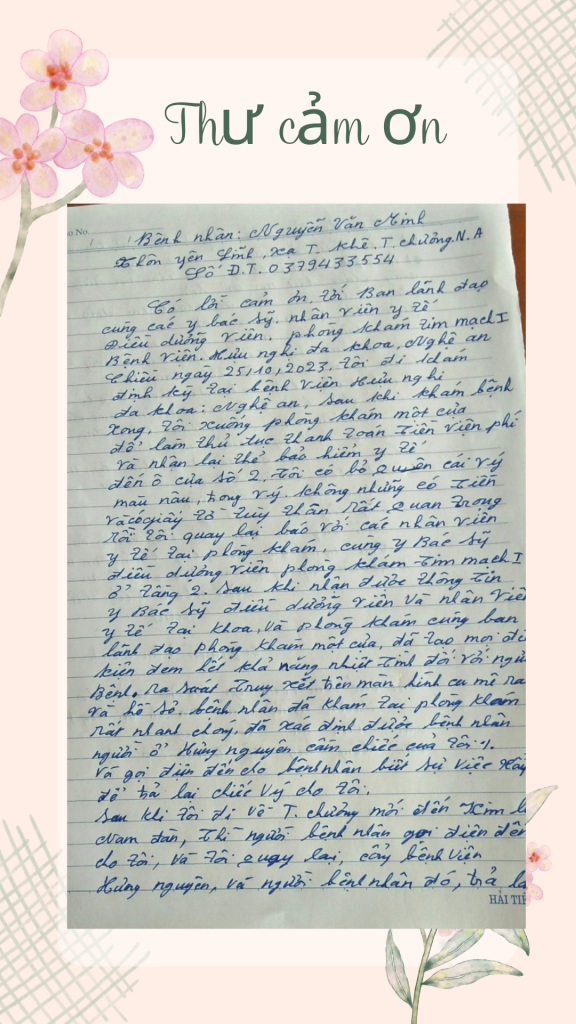 Thư cảm ơn
No.
Bệnh nhân: Nguyễn Văn Minh
Thôn yên Lĩnh, xa T. Khê. T. chương. N. A
Số Đ.T. 0379433554
Có lời cảm ơn, tới Ban lãnh đạo
cung các y bác sỹ. nhân viên y tế
điều dưỡng viên. phòng khám tim mạch I
Bệnh viên. Hưu nghị đa khoa, Nghệ an
Chiều ngày 25/10/2023. tôi đi khám
định kỳ tai bênh viện Hưu nghị
đa khoa: Nghệ an, sau khi khám bệnh
xong, tôi xuống phòng khám một cửa
để lam thủ tục thanh toán tiền viện phí
và nhân lai thẻ bảo hiểm y tế
đến ô cửa số 2, tôi có bỏ quên cái ví
mau nâu, trong ví. không những có tiền
và có giấy tờ tuỳ thân rất quan trong
rồi tôi quay lai báo với các nhân viên
y tế tai phòng khám, cung y Bác sỹ
điều dưỡng viên phong khám tim mach I
ở tầng 2. sau khi nhân được thông tin
y Bác sỹ điều dưỡng viên và nhân viên
y tế tai khoa, và phòng kham cung ban
lãnh đao phong kham một cửa, đã tao moi
kiên đem hết khả năng nhiêt tình đối với
Bênh. ra soát truy xét trên man hình ca mê ra
và hồ sơ bệnh nhân đã kham tai phòng kham
rất nhanh chóng. đã xác định được bênh nhân
người ở Hưng nguyên cầm chiếc của tôi.
và gọi điện đến cho bệnh nhân biết sự việc
để trả lai chiếc ví cho tôi.
sau khi tôi đi về T. chương mới đến
Nam đàn, thì người bênh nhân gọi điên đến
cho tôi, và tôi quay lai, cổng bênh viện
Hưng nguyên, và người bênh nhân đó, trả
HẢI TI